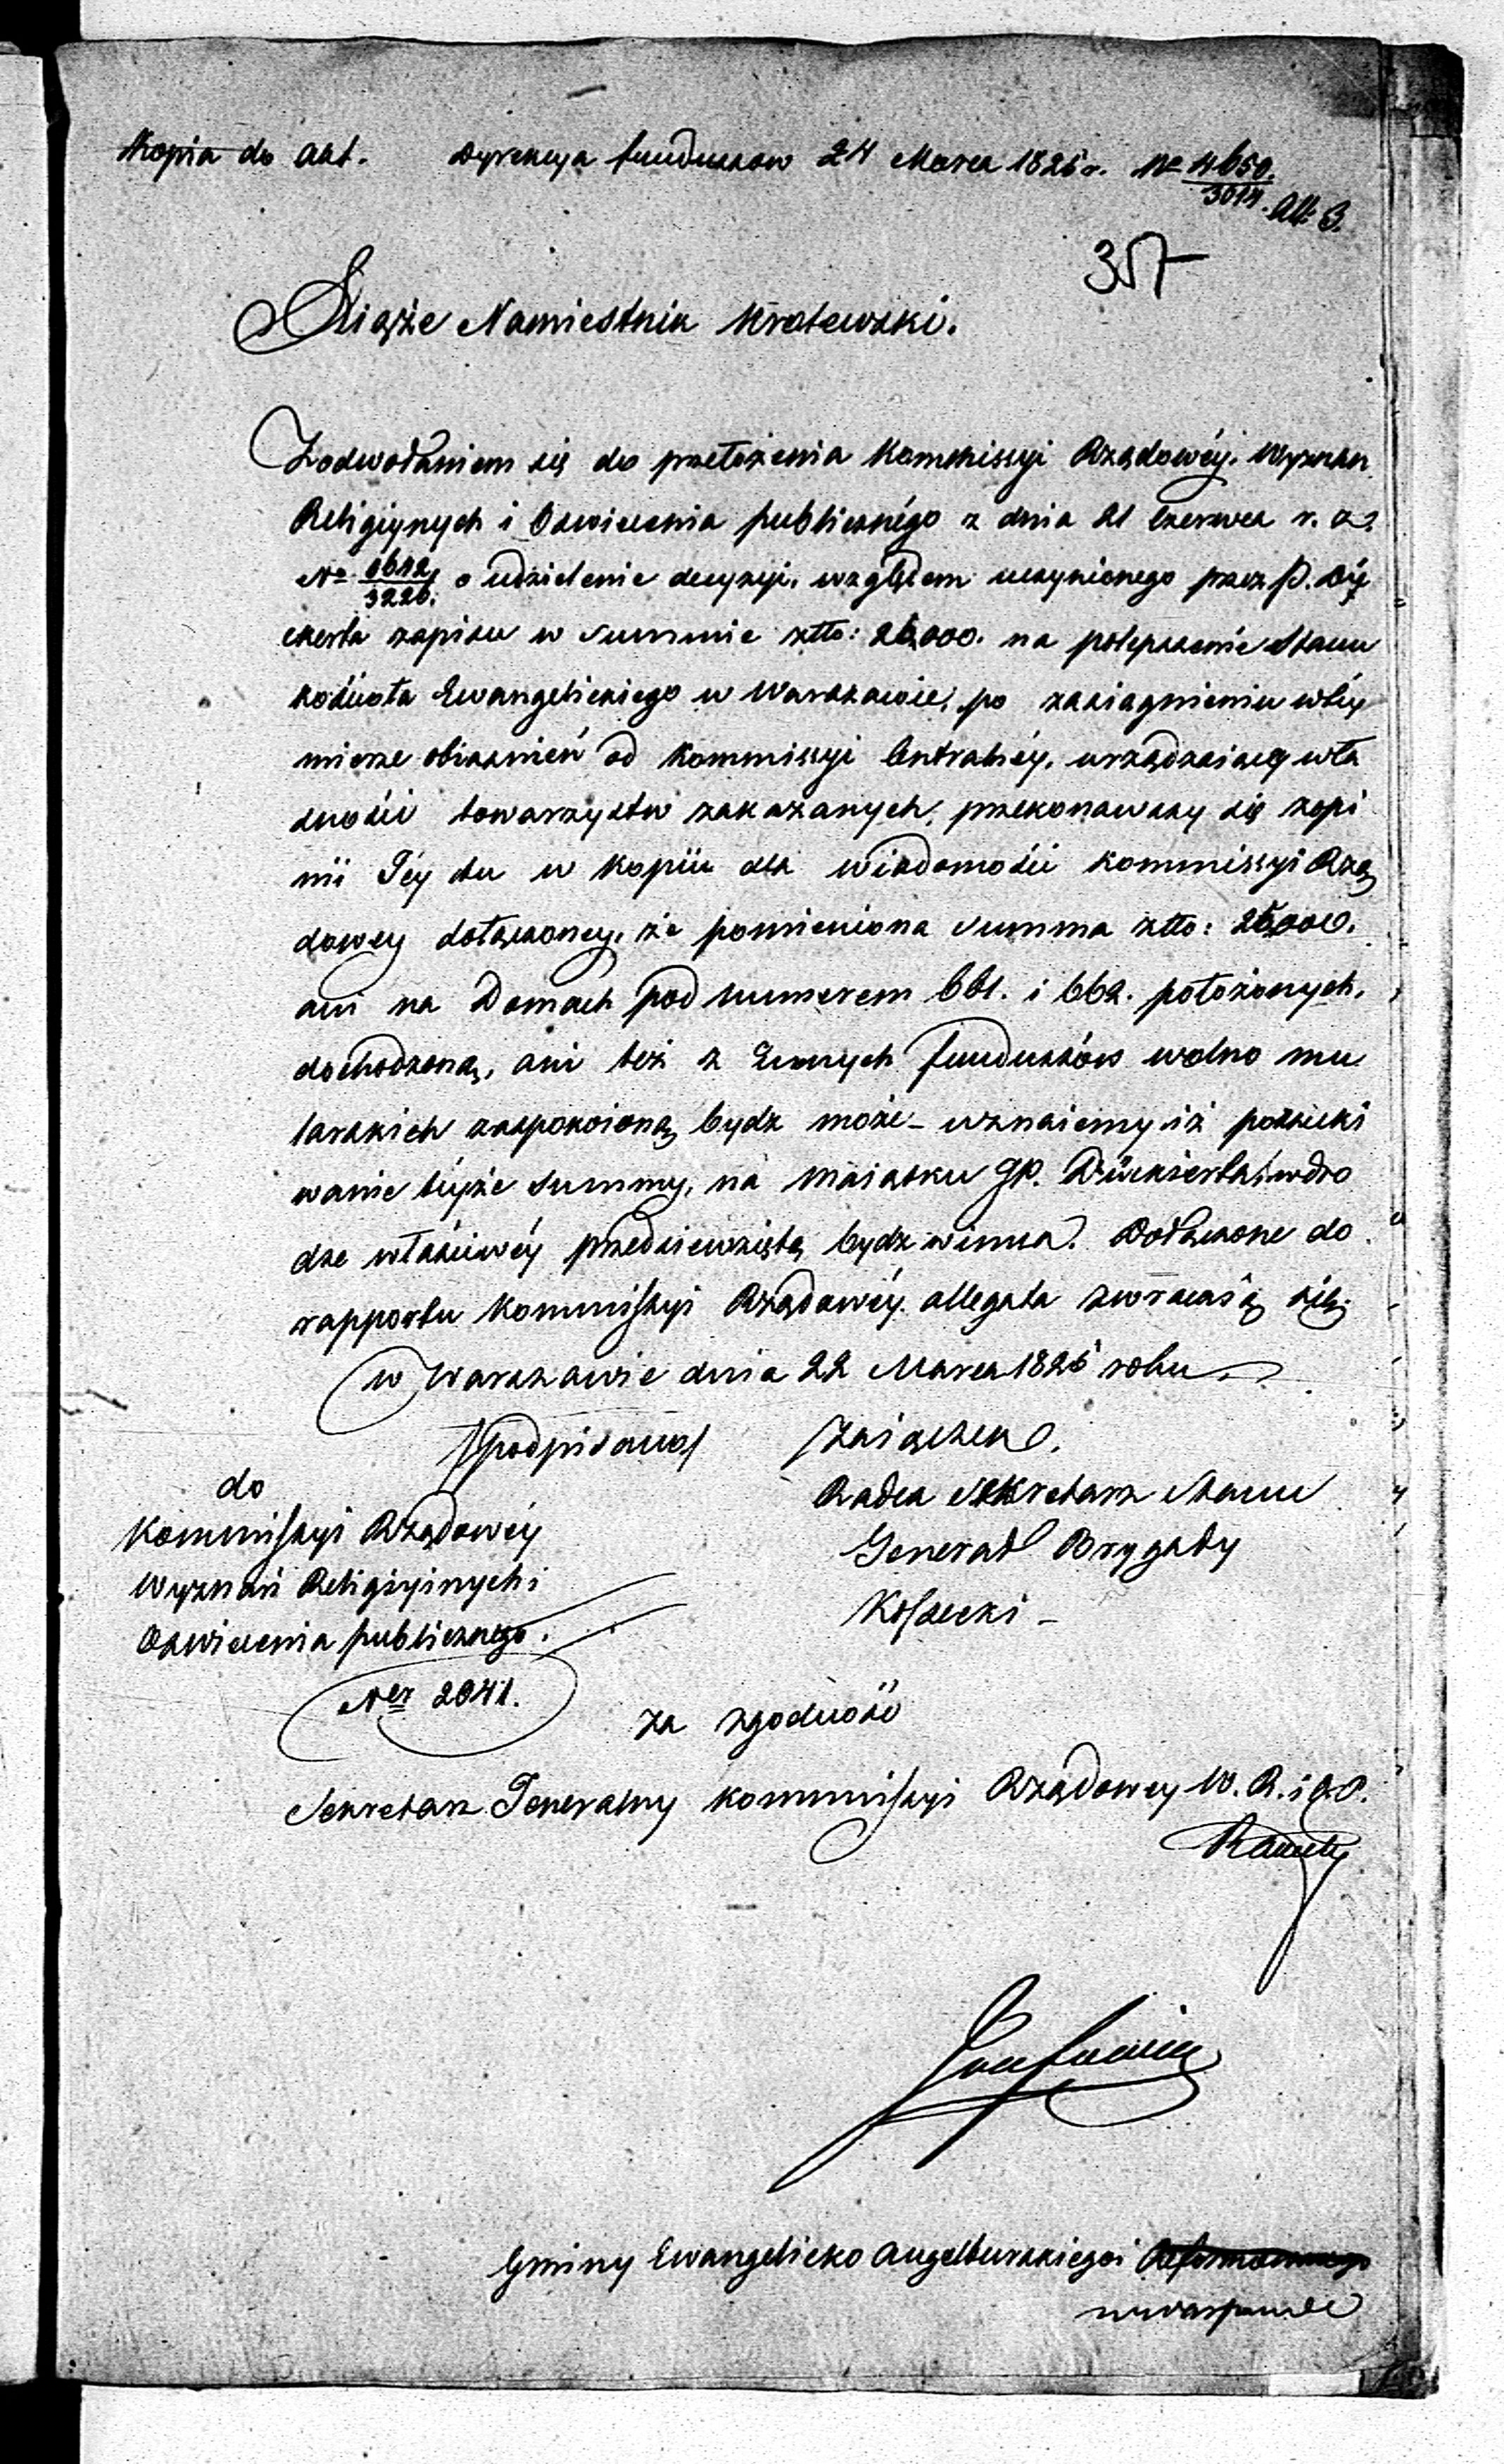 Kopia do Akt. Dyrekcya funduszow 24 Marca 1825 r. No 4650./3014. Alt 3.
357
Xiąże Namiestnik Krolewski.
Z odwołaniem się do przełożenia Kommissyi Rządowéy Wyznan
Religiynych i Oswiecenia publicznégo z dnia 21 Czerwca r. z.
No 6642/3226. o udzielenie decyzyi, względem uczynionego przez P. Dy
ckerta zapisu w summie złło: 26,000. na polepszenie Stanu
kościoła Ewangelickiego w Warszawie, po zasiągnieniu w téy
mierze obiasnień od Kommissyi Centralnéy, urządzaiącey wła
dności towarzystw zakazanych, przekonawszy się z opi
nii Téy tu w kopii dla wiadomości Kommissyi Rzą
dowey dołączoney, że pomieniona summa złło: 26000.
ani na Domach pod numerem 661. i 662. położonych,
dochodzoną, ani też z Innych funduszów wolno mu
larskich zaspokoioną bydz może - uznaiemy iż poszuki
wanie téyże summy, na Maiątku JP. Dückierta, w dro
dze właściwéy przedsiewziętą bydz winna. Dołączone do
rapportu Kommissyi Rządowéy allegata zwracaią się.
w Warszawie dnia 22 Marca 1825 roku
/podpisano/ Zaiączek.
do Radca Sekretarz Stanu
Kommissyi Rządowéy Generał Brygady
Wyznań Religiyinych i Kossecki -
Oswiecenia publicznego.
Ner 2041.
Za zgodność
Sekretarz Jeneralny Kommissyi Rządowey W. R. i O. P.
Gminy Ewangelicko Augsburskiego i Reformowanego
w Warszawie